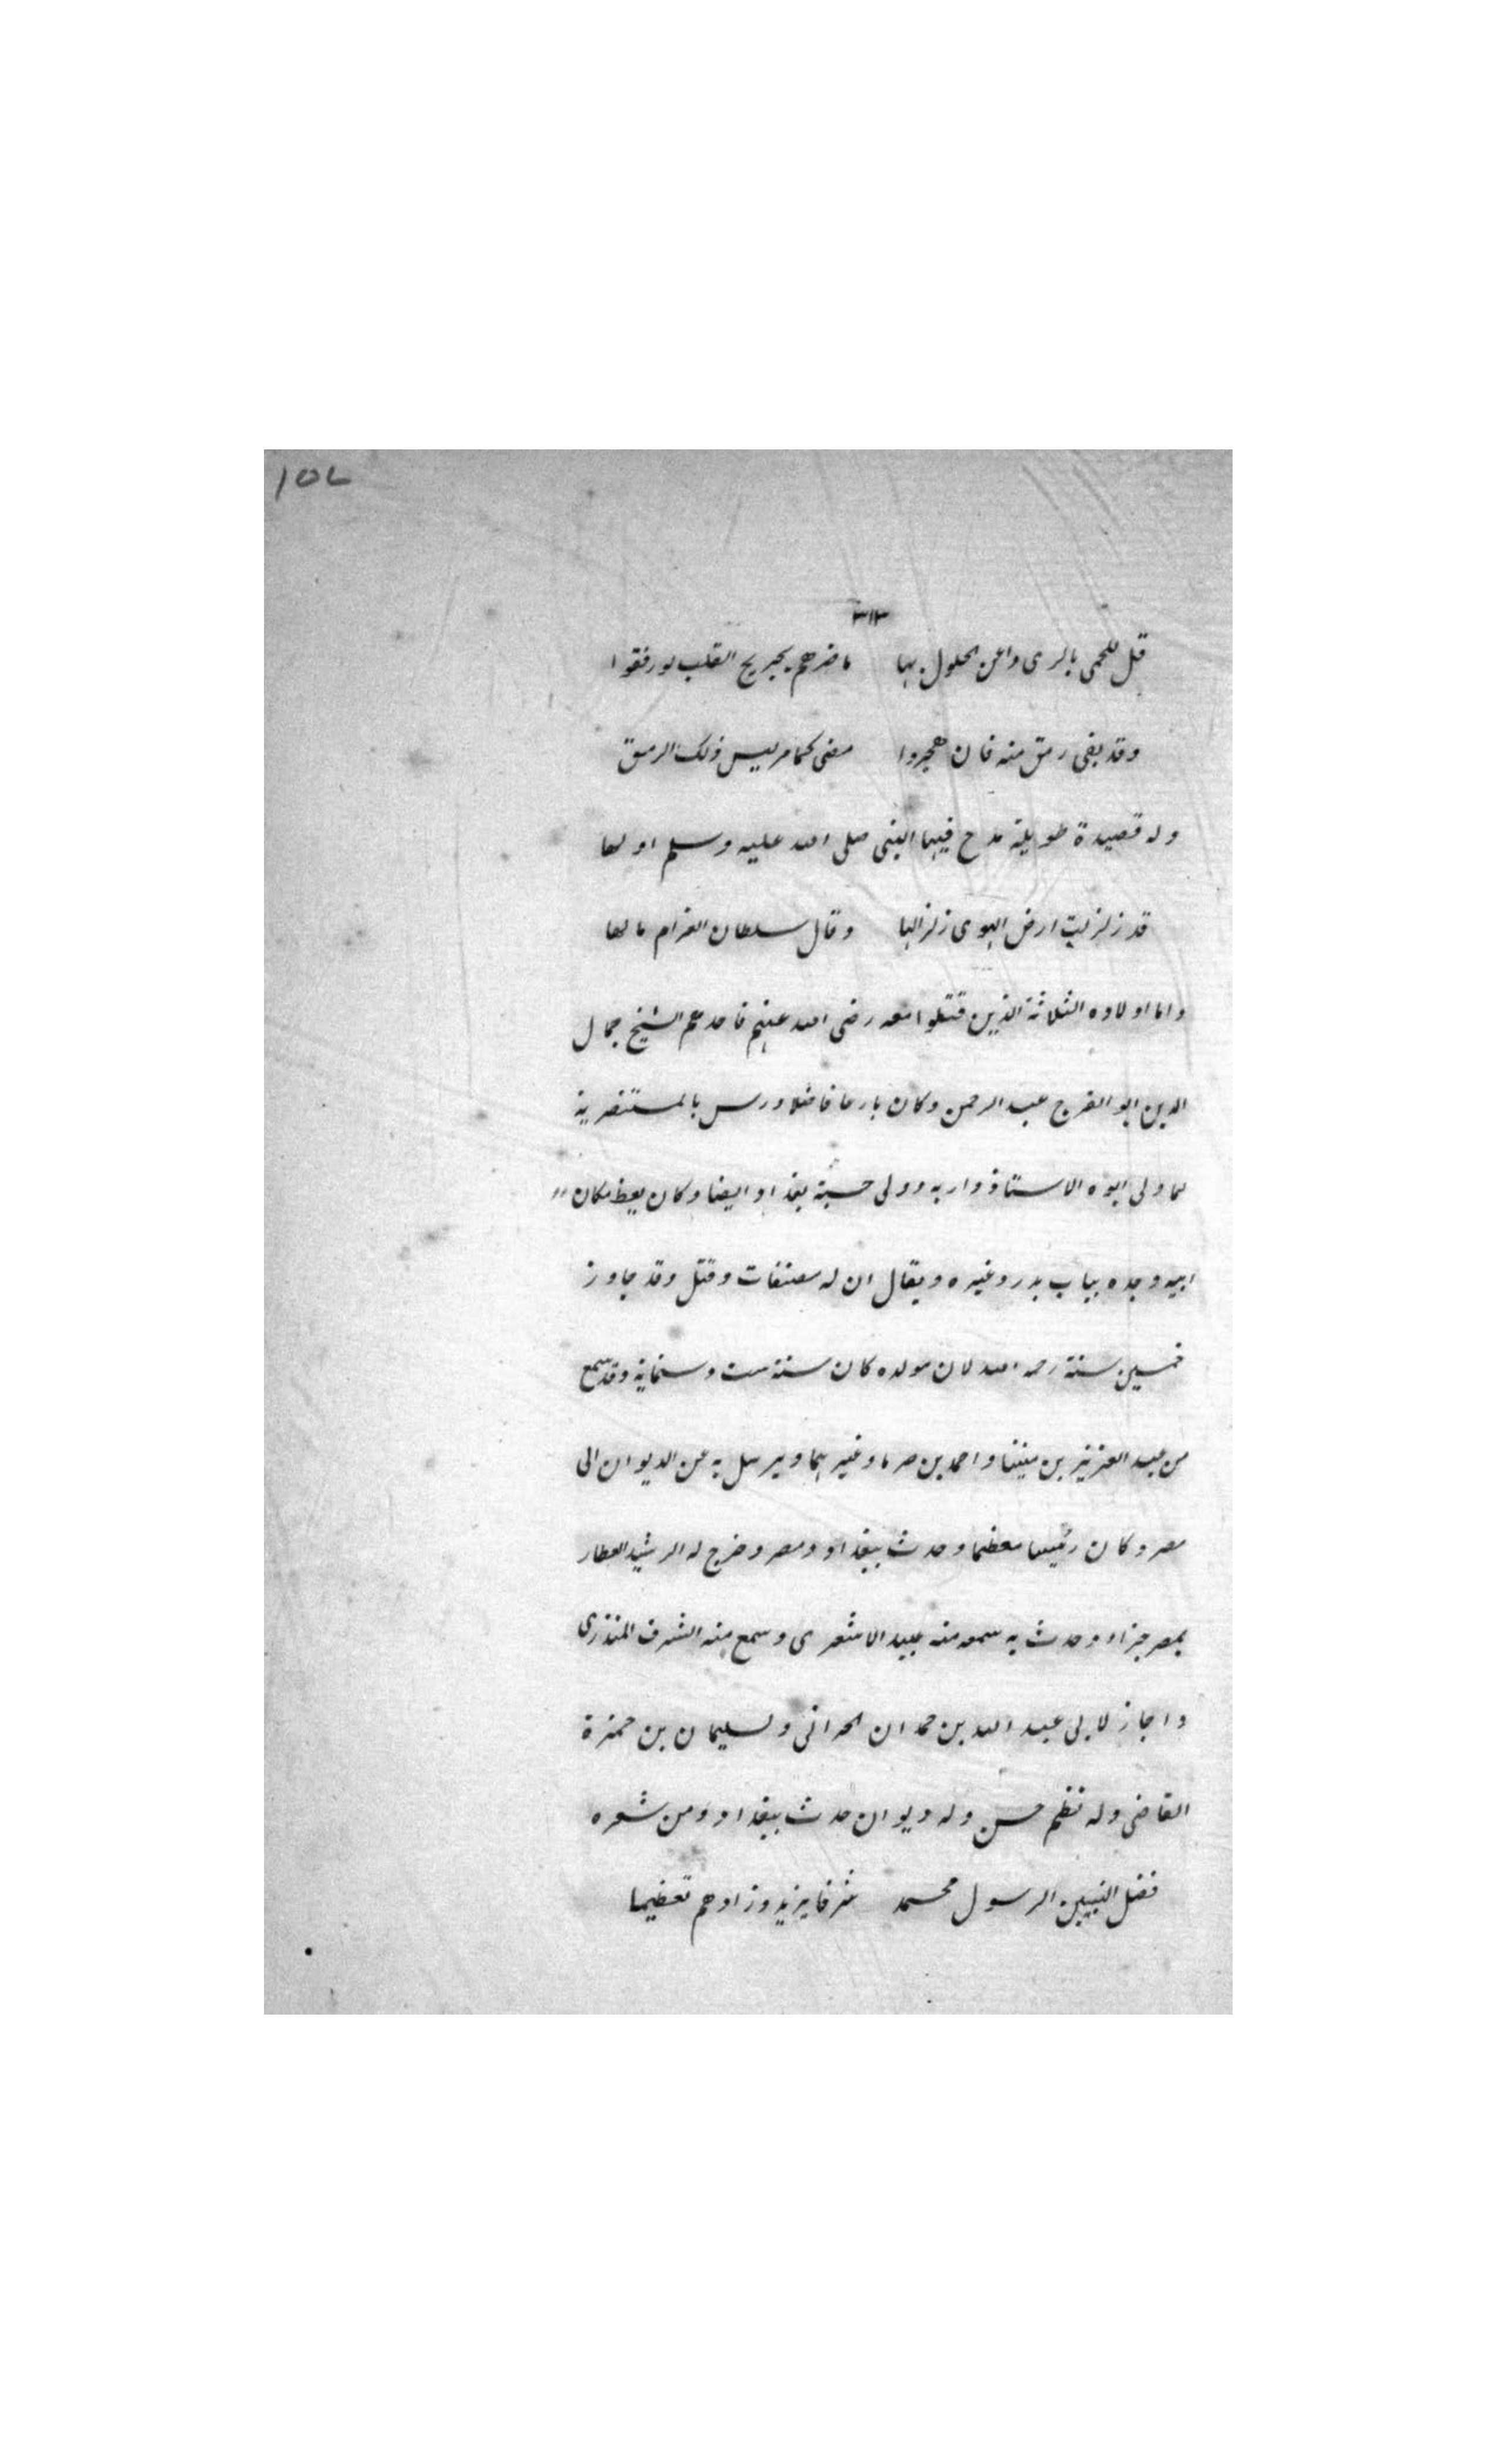 ١٥٧
٣١٣
قل للحمى بالرى واعن الحلول بها ما ضرهم بجريح القلب لو رفقوا
وقد بقى رمق منه فان هجروا مضى كما مر ليس ذلك الرمق
وله قصيدة طويلة مدح فيها النبى صلى الله عليه وسلم اولها
قد زلزلت ارض الهوى زلزالها وقال سلطان الغرام مالها
واما اولاده الثلاثة الذين قتلوا معه رضى الله عنهم فاحدهم الشيخ جمال
الدين ابو الفرج عبد الرحمن وكان بارعا فاضلا درس بالمستنصرية
لما ولى ابوه الاستاذ دارية وولى حسبة بغداد ايضا وكان يعظ مكان
ابيه وجده بباب بدر وغيره ويقال ان له مصنفات وقتل وقد جاوز
خمسين سنة رحمه الله لان مولده كان سنة ست وستماية وقد سمع
من عبد العزيز بن منينا واحمد بن صرما وغيرهما ويرسل به عن الديوان الى
مصر وكان رئيسا معظما وحدث ببغداد ومصر وخرج له الرشيد العطار
بمصر جزاء وحدث به سمعه منه عبيد الاشعرى وسمع منه الشرف المنذرى
واجاز لابى عبد الله بن حمدان الحرانى وسليمان بن حمزة
القاضى وله نظم حسن وله ديوان حدث ببغداد ومن شعره
فضل النبيين الرسول محمد شرفا يزيد وزادهم تعظيما